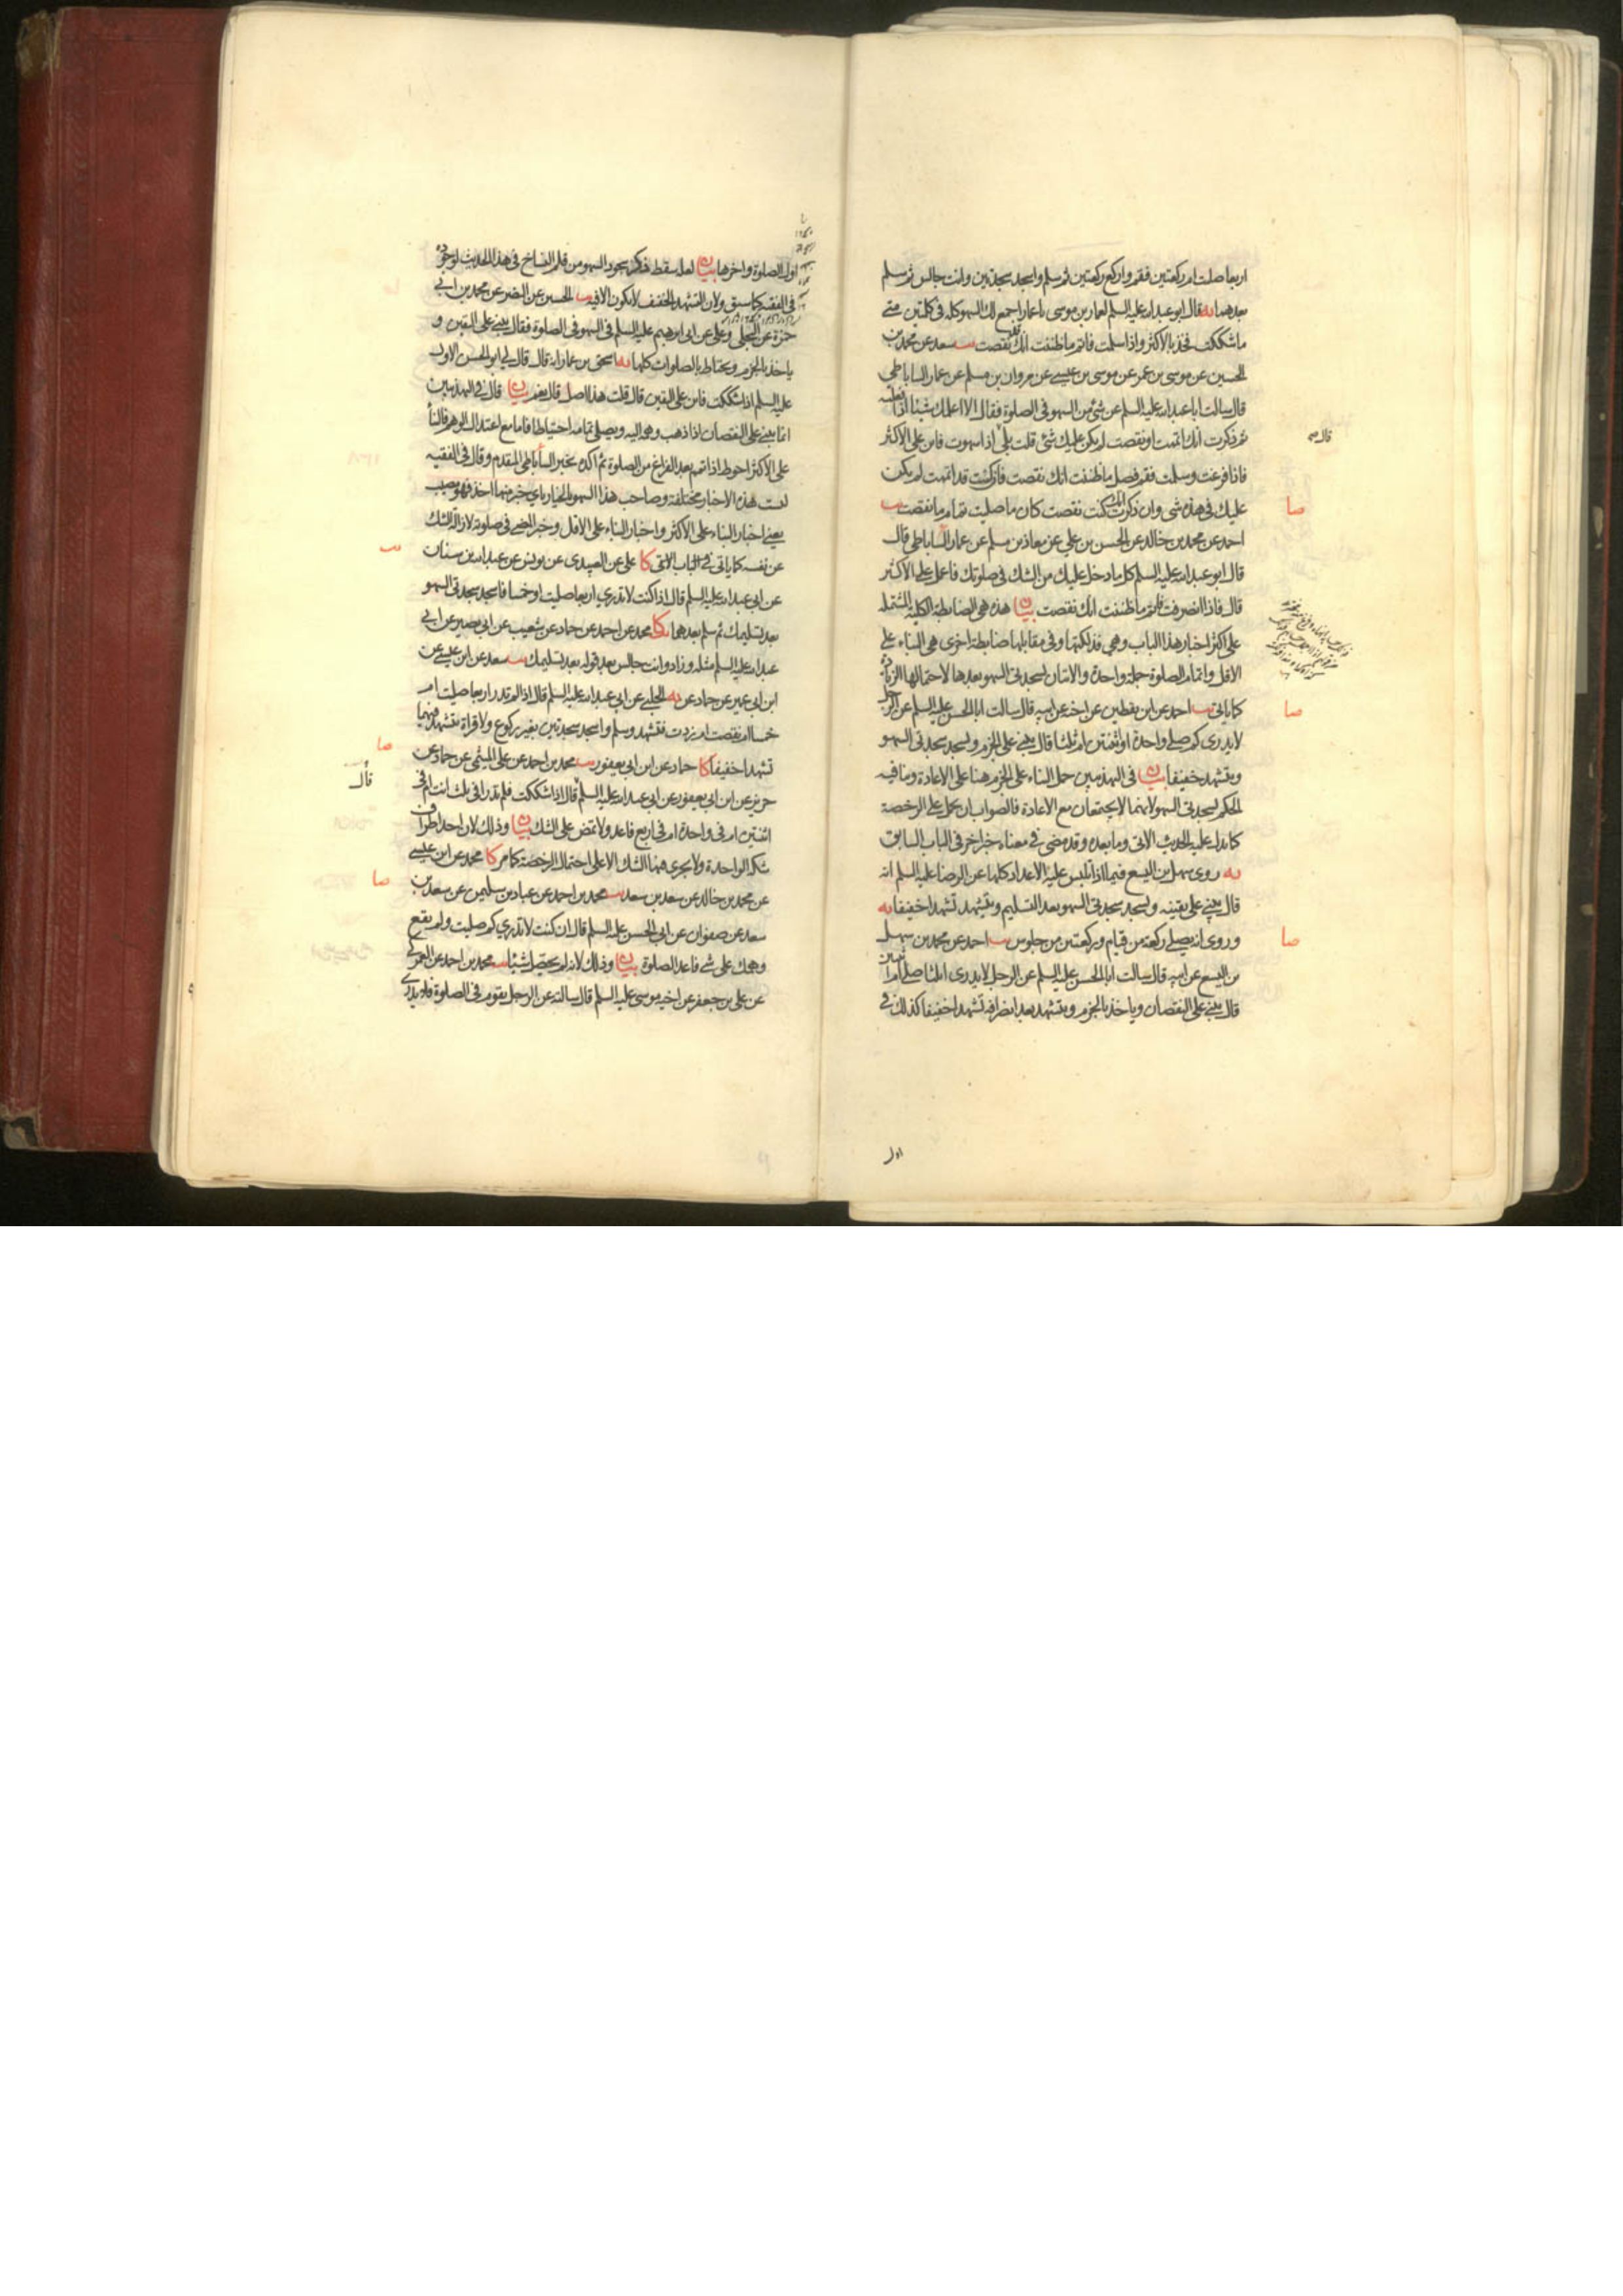 اربعا صليت ام ركعتين فقم واركع ركعتين ثم سلم واسجد سجدتين وانت جالس ثم سلم
بعدهما يه قال ابو عبد الله عليه السلم لعمار بن موسى يا عمار اجمع لك السهو كله في كلمتين متى
ما شككت فخذ بالاكثر واذا سلمت فاتم ما ظننت انك نقصت يب سعد عن محمد بن
الحسين عن موسى بن عمر عن موسى بن عيسى عن مروان بن مسلم عن عمار الساباطي
قال سالت ابا عبد الله عليه السلم عن شئ من السهو في الصلوة فقال الا اعلمك شيئا اذا فعلته
ثم ذكرت انك اتممت او نقصت لم يكن عليك شئ قلت بلى قال اذا سهوت فابن على الاكثر
فاذا فرغت وسلمت فقم فصل ما ظننت انك نقصت فان كنت قد اتممت لم يكن
عليك في هذه شى وان ذكرت انك كنت نقصت كان ما صليت تمام ما نقصت يب
صا
احمد عن محمد بن خالد عن الحسن بن علي عن معاذ بن مسلم عن عمار الساباطي قال
قال ابو عبد الله عليه السلم كل ما دخل عليك من الشك في صلوتك فاعمل على الاكثر
قال فاذا انصرفت فاتم ما ظننت انك نقصت بيان هذه هي الضابطة الكلية المشتملة
على اكثر اخبار هذا الباب وهي فذلكتها وفي مقابلها ضابطة اخرى هي البناء على
الاقل واتمام الصلوة جملة واحدة والاتيان بسجدتي السهو بعدها لاحتمالها الزيادة
كما ياتي يب احمد عن ابن يقطين عن اخيه عن ابيه قال سالت ابا الحسن عليه السلم عن الرجل
صا
لا يدرى كم صلى واحدة او اثنتين ام ثلثا قال يبنى على الجزم ويسجد سجدتي السهو
ويتشهد خفيفا بيان في التهذيبين حمل البناء على الجزم هنا على الاعادة وينافيه
الحكم بسجدتي السهو لانهما لا يجتمعان مع الاعادة فالصواب ان يحمل على الرخصة
كما يدل عليه الحديث الاتى وما بعده وقد مضى في معناه خبر اخر في الباب السابق
يه روى سهل بن اليسع فيما اذا تلبس عليه الاعداد كلها عن الرضا عليه السلم انه
قال يبنى على يقينه ويسجد سجدتي السهو بعد التسليم ويتشهد تشهدا خفيفا يه
وروى انه يصلى ركعة من قيام وركعتين من جلوس يب احمد عن محمد بن سهل
صا
بن اليسع عن ابيه قال سالت ابا الحسن عليه السلم عن الرجل لا يدرى اثلثا صلى ام اثنتين
قال يبنى على النقصان وياخذ بالجزم ويتشهد بعد انصرافه تشهدا خفيفا كذلك في
اول
اول الصلوة واخرها بيان لعله سقط ذكر سجود السهو من قلم النساخ في هذا الحديث لوجوده
في الفقيه كما سبق ولان التشهد الخفيف لا يكون الا فيه يب الحسين عن النضر عن محمد بن ابي
حمزة عن البجلي وعلى عن ابي ابرهيم عليه السلم في السهو في الصلوة فقال يبنى على اليقين و
ياخذ بالجزم ويحتاط بالصلوات كلها يه اسحق بن عمار انه قال قال لي ابو الحسن الاول
عليه السلم اذا شككت فابن على اليقين قال قلت هذا اصل قال نعم بيان قال في التهذيبين
انما يبنى على النقصان اذا ذهب وهمه اليه ويصلى تمامه احتياطا فاما مع اعتدال الوهم فالبناء
على الاكثر احوط اذا تمم بعد الفراغ من الصلوة ثم اكده بخبر الساباطي المقدم وقال في الفقيه
ليست هذه الاخبار مختلفة وصاحب هذا السهو بالخيار باي خبر منها اخذ فهو مصيب
يعنى اخبار البناء على الاكثر واخبار البناء على الاقل وخبر المضى في صلوته لازالة الشك
عن نفسه كما ياتى في الباب الاتى كا علي عن العبيدي عن يونس عن عبد الله بن سنان
يب
عن ابي عبد الله عليه السلم قال اذا كنت لا تدري اربعا صليت او خمسا فاسجد سجدتي السهو
بعد تسليمك ثم سلم بعدهما كا محمد عن احمد عن حماد عن شعيب عن ابي بصير عن ابي
عبد الله عليه السلم مثله وزاد وانت جالس بعد قوله بعد تسليمك يب سعد عن ابن عيسى عن
ابن ابي عمير عن حماد عن يه الحلبي عن ابي عبد الله عليه السلم قال اذا لم تدر اربعا صليت ام
خمسا ام نقصت ام زدت فتشهد وسلم واسجد سجدتين بغير ركوع ولا قراة تتشهد فيهما
تشهدا خفيفا كا حماد عن ابن ابي يعفور يب محمد بن احمد عن على الميثمي عن حماد عن
صا
حريز عن ابن ابي يعفور عن ابي عبد الله عليه السلم قال اذا شككت فلم تدر افي ثلث انت ام في
قال
اثنتين ام في واحدة ام في اربع فاعد ولا تمض على الشك بيان وذلك لان احد اطراف
شكه الواحدة ولا يجرى فيها الشك الا على احتمال الرخصة كما مر كا محمد عن ابن عيسى
عن محمد بن خالد عن سعد بن سعد يب محمد بن احمد عن عباد بن سليمن عن سعد بن
صا
سعد عن صفوان عن ابي الحسن عليه السلم قال ان كنت لا تدري كم صليت ولم يقع
وهمك على شئ فاعد الصلوة بيان وذلك لانه لم يحصل شيئا يب محمد بن احمد عن العمركي
عن على بن جعفر عن اخيه موسى عليه السلم قال سالته عن الرجل يقوم في الصلوة فلا يدري